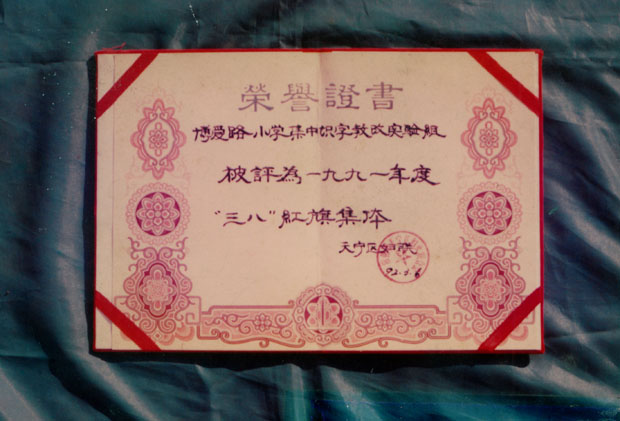 榮譽證書
博爱路小学集中识字教改实验组
被評為一九九一年度
"三八"紅旗集体
天宁区妇联
92.3.6